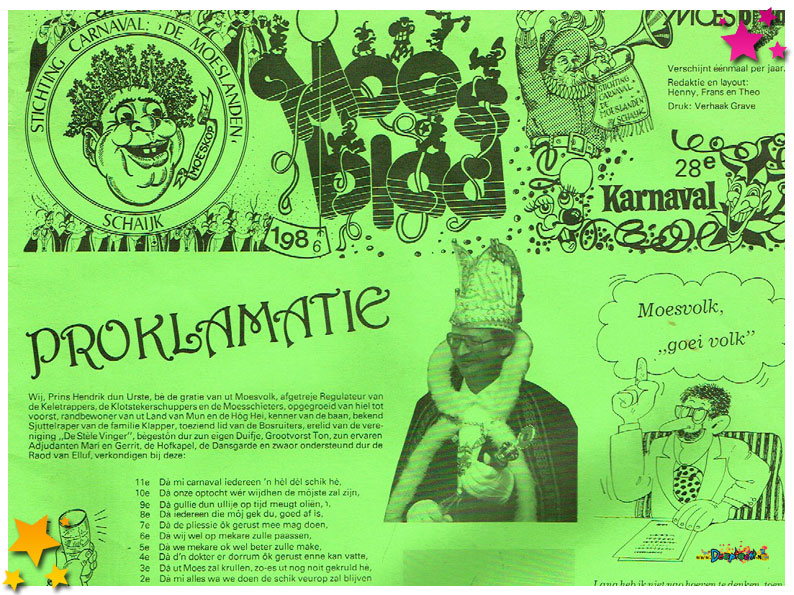 STICHTING CARNAVAL: 'DE MOESLANDEN'
SCHAIJK
MOESKOP
Moes
blad
1986
STICHTING
CARNAVAL
DE
MOESLANDEN
SCHAIJK
MOES
Verschijnt éénmaal per jaar.
Redaktie en layout:
Henny, Frans en Theo
Druk: Verhaak Grave
28e
Karnaval
PROKLAMATIE
Wij, Prins Hendrik dun Urste, bè de gratie van ut Moesvolk, afgetreje Regulateur van
de Keletrappers, de Klotstekerschuppers en de Moesschieters, opgegroeid van hiel tot
voorst, randbewoner van ut Land van Mun en de Hôg Hei, kenner van de baan, bekend
Sjuttelraper van de familie Klapper, toeziend lid van de Bosruiters, erelid van de vere-
niging ,,De Stèle Vinger'', bègestón dur zun eigen Duifje, Grootvorst Ton, zun ervaren
Adjudanten Mari en Gerrit, de Hofkapel, de Dansgarde en zwaor ondersteund dur de
Raod van Elluf, verkondigen bij deze:
11e Dá mi carnaval iedereen 'n hèl dèl schik hé,
10e Dá onze optocht wer wijdhen de mójste zal zijn,
9e Dá gullie dun ullije op tijd meugt oliën,
8e Dá iedereen die mój gek du, goed af is,
7e Dá de pliessie ôk gerust mee mag doen,
6e Dá wij wel op mekare zulle paassen,
5e Dá we mekare ok wel beter zulle make,
4e Dá d'n dokter er dorrum ôk gerust enne kan vatte,
3e Dá ut Moes zal krullen, zo-es ut nog noit gekruld hé,
2e Dá mi alles wa we doen de schik veurop zal blijven
Moesvolk,
,,goei volk''
www.
.nl
Lang heb ik niet nao hoeven te denken, toen